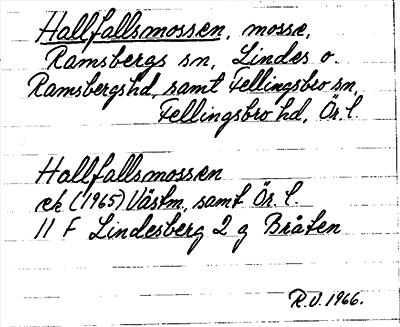 Hallfallsmossen, mosse,
Ramsbergs sn, Lindes o.
Ramsbergs hd, samt Fellingsbro sn,
Fellingsbro hd, Ör. l.
Hallfallsmossen
ek (1965) Västm, samt Ör. l.
11 F Lindesberg 2 g Bråten
R.U. 1966.